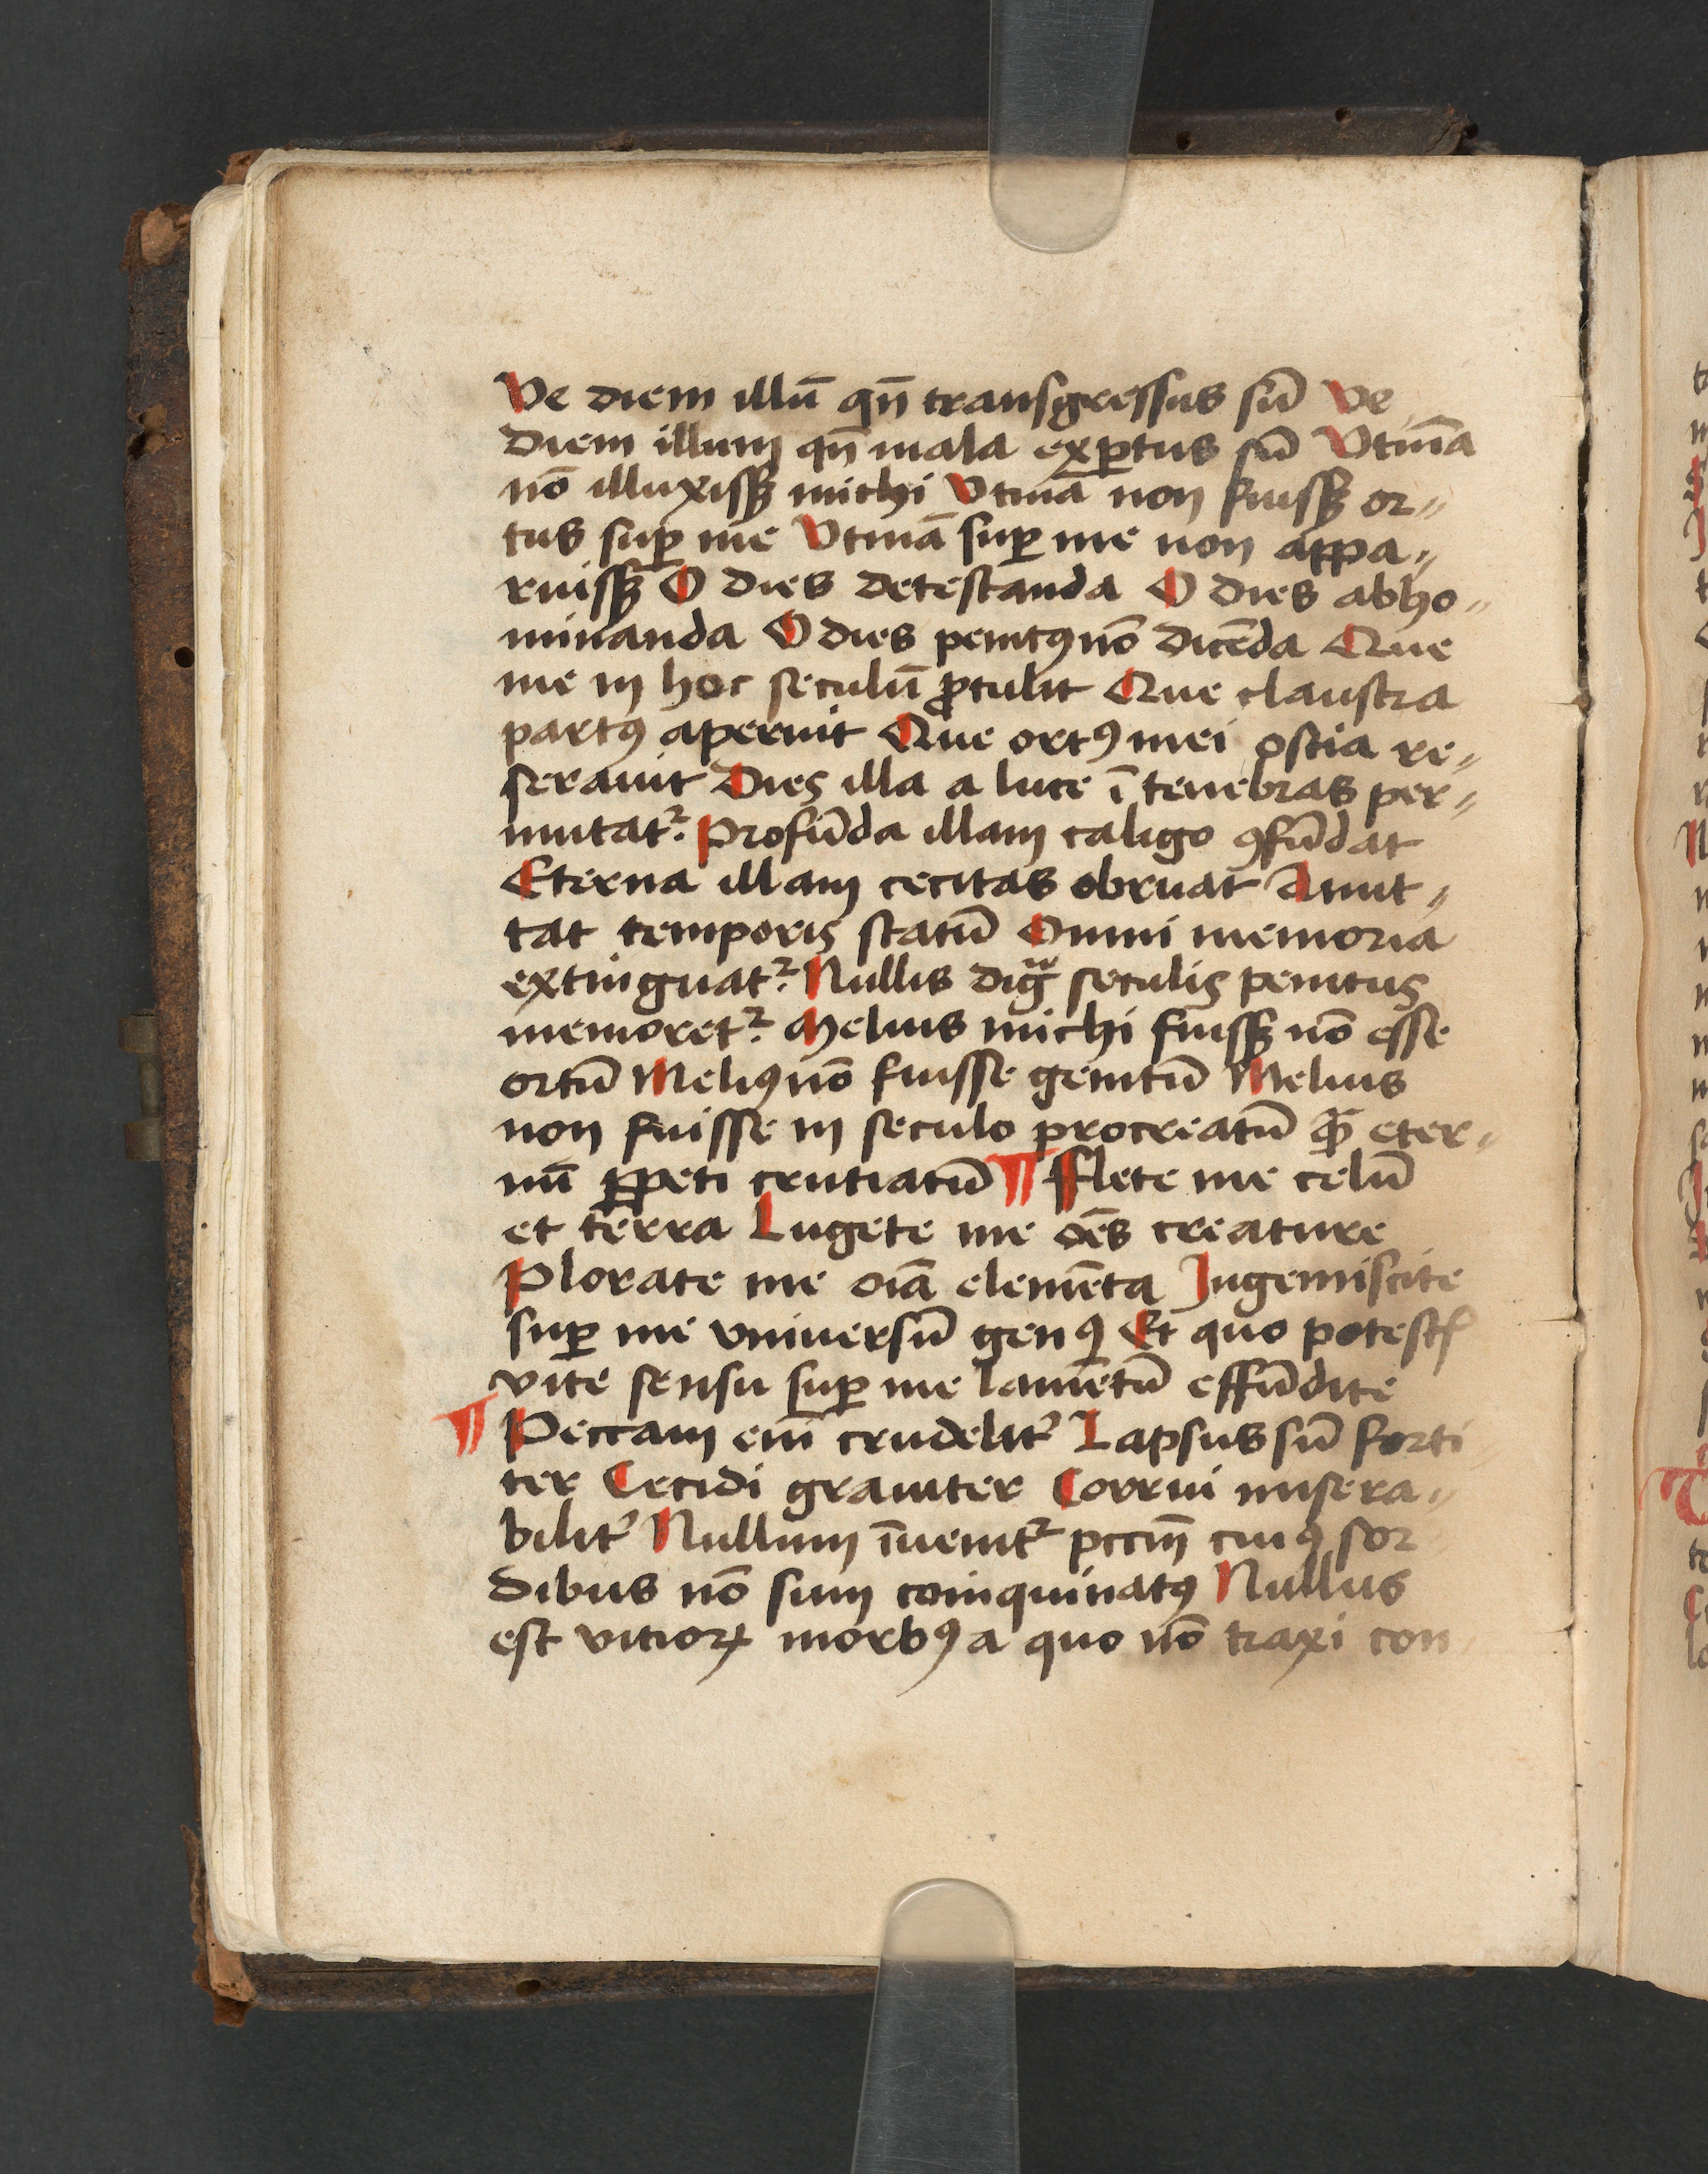 Ve diem illū qn̄ transgressus sū Ve
diem illum qn̄ mala exꝑtus sū Vtinā
nō illuxissꝫ michi Vtinā non fuissꝫ or⸗
tus suꝑ me Vtinā suꝑ me non appa⸗
ruissꝫ O dies detestanda O dies abho⸗
minanda O dies penitꝰ nō dicēda Que
me in hoc seculū ꝓtulit Que claustra
partꝰ aperuit Que ortꝰ mei ostia re⸗
serauit Dies illa a luce ī tenebras per⸗
mutatᷣ Profūda illam caligo ꝯfūdat
Eterna illam cecitas obruat Amit⸗
tat temporis statū Omni memoria
extinguatᷣ Nullis digᷓ seculis penitus
memoretᷣ Melius michi fuissꝫ nō esse
ortū Meliꝰ nō fuisse genitū Melius
non fuisse in seculo procreatū ꝙ̄ eter⸗
nū ꝑpeti crutiatū ¶ Flete me celū
et terra Lugete me oēs creature
Plorate me oīa elemēta Ingemiscite
suꝑ me vniuersū genꝰ Et quo potestꝭ
vite sensu suꝑ me lamētū effūdite
¶ Peccam eīn crudelit᷑ Lapsus sū forti
ter Cecidi grauiter Corrui misera⸗
bilit᷑ Nullum īuenitᷣ pccm̄ cuiꝰ sor
dibus nō sum coinquinatꝰ Nullus
est vitioꝝ morbꝰ a quo nō traxi con